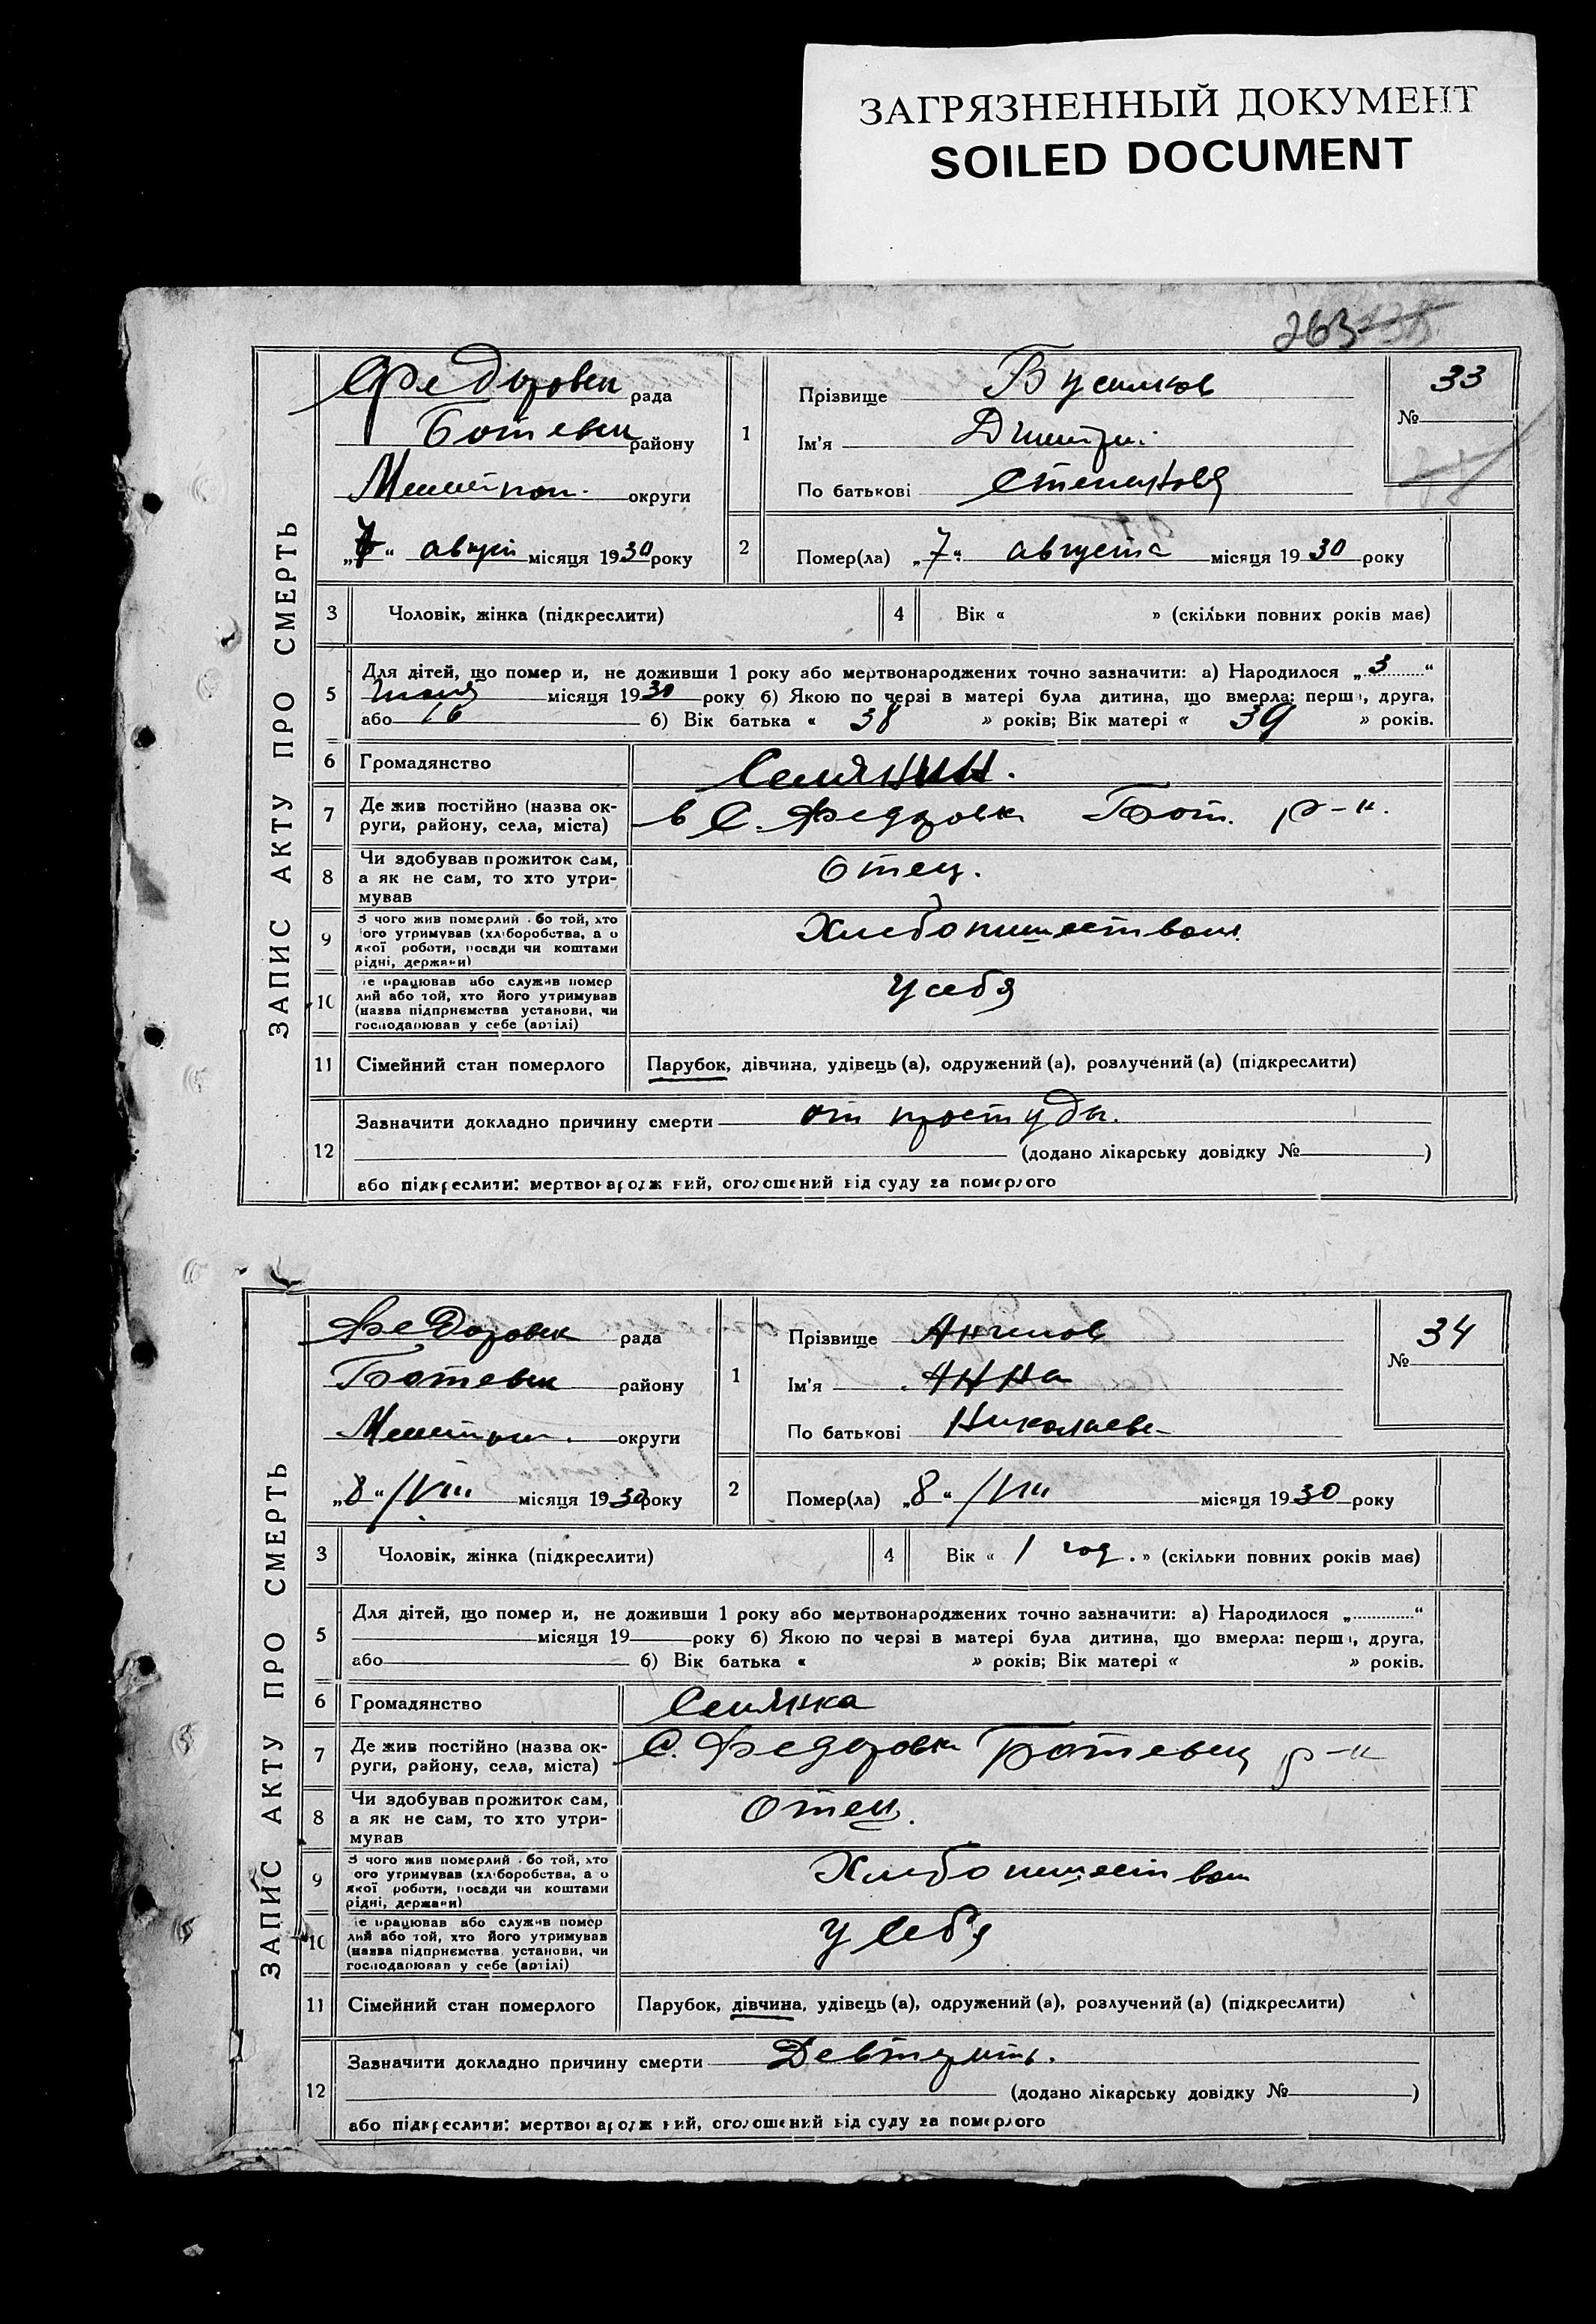 ЗАГРЯЗНЕННЫЙ ДОКУМЕНТ
SOILED DOCUMENT
263
ЗАПИС АКТУ ПРО СМЕРТЬ
Федоровск рада
Ботевск району
Мелитпол. округи
„7“ август місяця 1930 року
1
Прізвище
Ім'я Дмитрий
По батькові Степанова
№ 33
2 Помер(ла) „7“ августа місяця 1930 року
3 Чоловік, жінка (підкреслити)
4 Вік « » (скільки повних років має)
5 Для дітей, що помер и, не доживши 1 року або мертвонароджених точно зазначити: а) Народилося „3“
місяця 1930 року б) Якою по черзі в матері була дитина, що вмерла: перш , друга,
або 6) Вік батька « 38 » років; Вік матері « 39 » років.
6 Громадянство Селянин.
7 Де жив постійно (назва ок-
руги, району, села, міста) в С. Федоровк Бот. р-н.
8 Чи здобував прожиток сам,
а як не сам, то хто утри-
мував Отец.
9 З чого жив померлий або той, хто
його утримував (хліборобства, а о
якої роботи, посади чи коштами
рідні, держави)
10 е працював або служив помер
лий або той, хто його утримував
(назва підприємства установи, чи
господарював у себе (артілі) у себя
11 Сімейний стан померлого Парубок, дівчина, удівець (а), одружений (а), розлучений (а) (підкреслити)
12 Зазначити докладно причину смерти от простуды.
(додано лікарську довідку № )
або підкреслити: мертвонародж ний, оголошений від суду за померлого
ЗАПИС АКТУ ПРО СМЕРТЬ
Федоровск рада
Ботевск району
Мелитпол. округи
„8“ /VIII місяця 1930 року
1
Прізвище Ангелов
Ім'я Анна
По батькові Николаев
№ 34
2 Помер(ла) „8“ /VIII місяця 1930 року
3 Чоловік, жінка (підкреслити)
4 Вік « 1 год. » (скільки повних років має)
5 Для дітей, що помер и, не доживши 1 року або мертвонароджених точно зазначити: а) Народилося „ “
місяця 19 року б) Якою по черзі в матері була дитина, що вмерла: перш , друга,
або 6) Вік батька « » років; Вік матері « » років.
6 Громадянство Селянка
7 Де жив постійно (назва ок-
руги, району, села, міста) С. Федоровк Ботевск р-н
8 Чи здобував прожиток сам,
а як не сам, то хто утри-
мував Отец.
9 З чого жив померлий або той, хто
ого утримував (хліборобства, а о
якої роботи, посади чи коштами
рідні, держави)
10 е працював або служив помер
лий або той, хто його утримував
(назва підприємства, установи, чи
господарював у себе (артілі) у себя
11 Сімейний стан померлого Парубок, дівчина, удівець (а), одружений (а), розлучений (а) (підкреслити)
12 Зазначити докладно причину смерти
(додано лікарську довідку № )
або підкреслити: мертвонародж ний, оголошений від суду за померлого